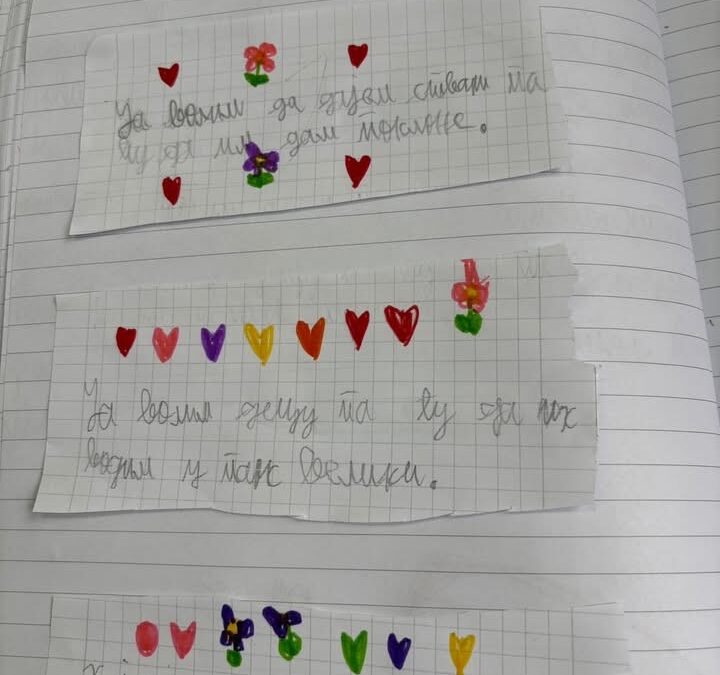 Ја волим да па
ћу да им дам поклоне.
Ја волим децу па ћу да их
водим у парк велики.